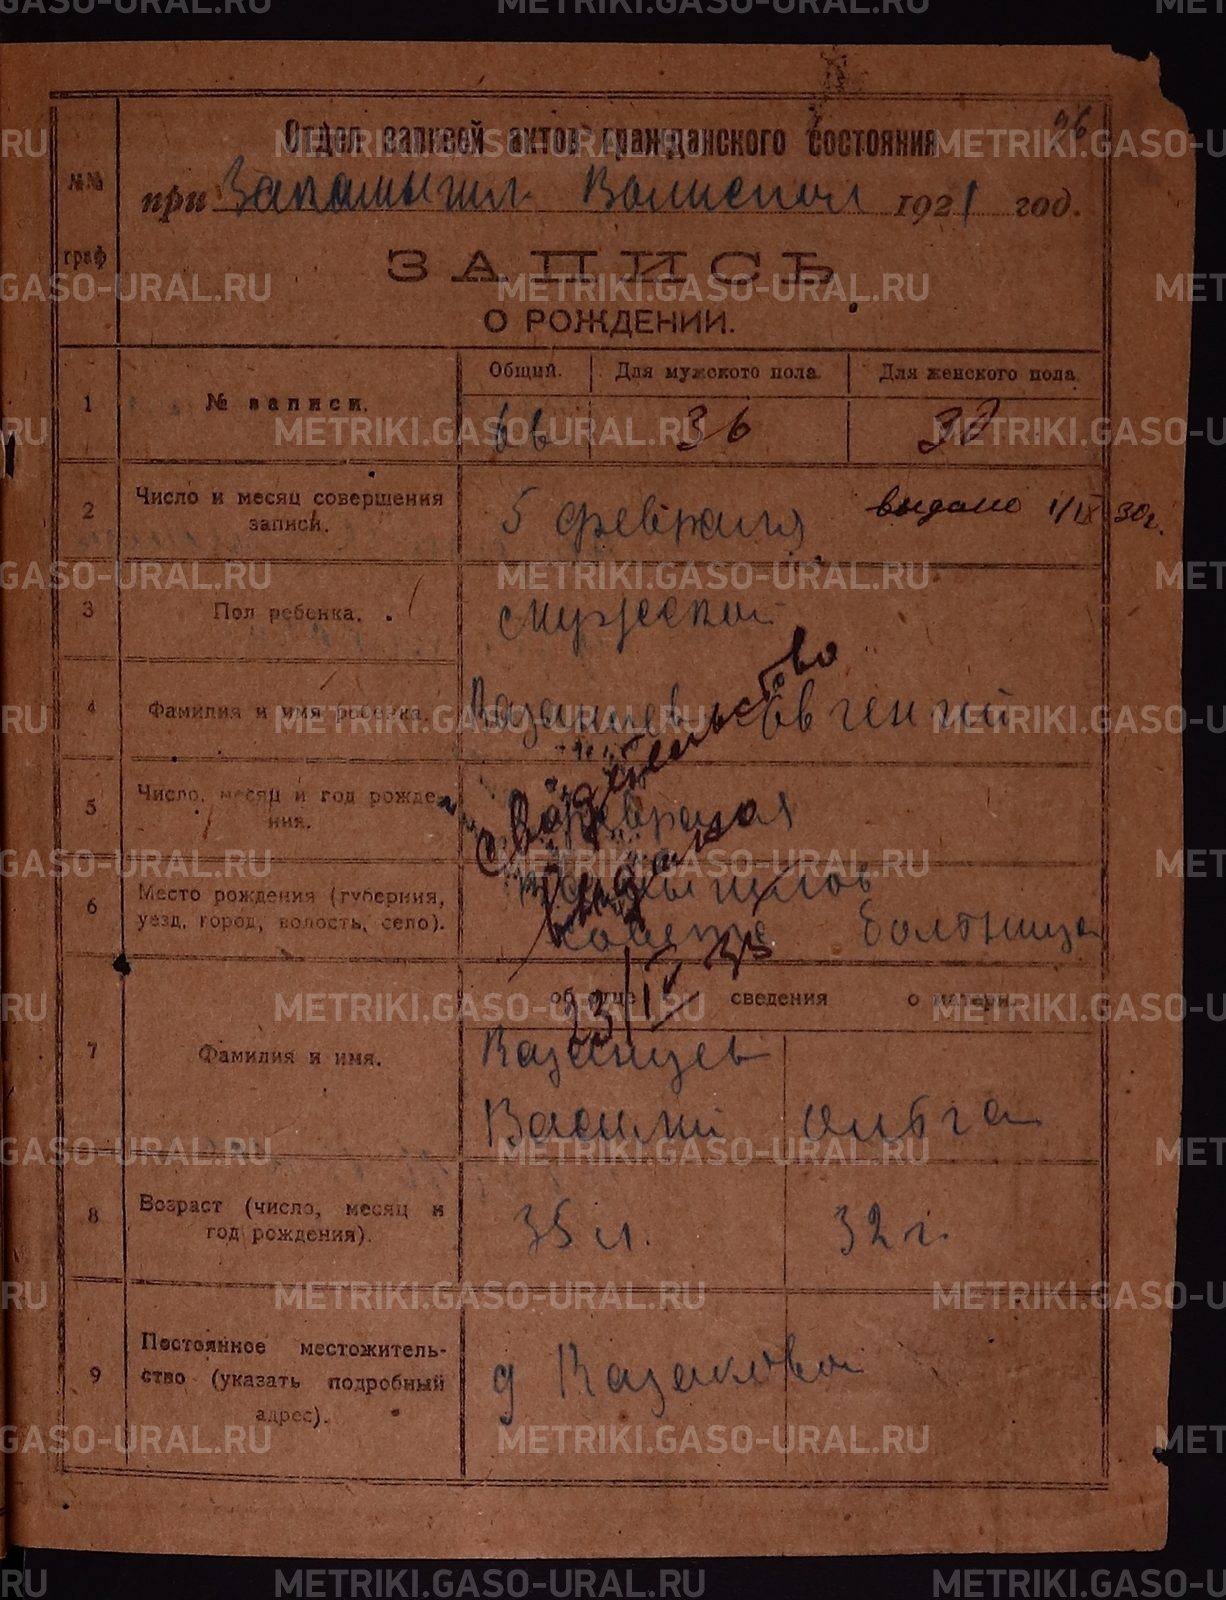 26
Отдел записей актов гражданского состояния
при Волиспол 1921 год.
№№
граф
ЗАПИСЬ
О РОЖДЕНИИ.
Общий. Для мужского пола. Для женского пола
1 № записи. 36
2 Число и месяц совершения записи. 5 февраля выдано 1/IX 30г.
3 Пол ребенка. мужской
4 Фамилия и имя ребенка. Казанцев Евгений
свидетельство
5 Число, месяц и год рождения. февраля
выдано
6 Место рождения (губерния,
уезд, город, волость, село). болтница
23/IV 33
об отце сведения о матери.
7 Фамилия и имя. Казанцев
Василий Ольга
8 Возраст (число, месяц и
год рождения). 35 л. 32 г.
9 Постоянное местожитель-
ство (указать подробный
адрес). д Казакова
METRIKI.GASO-URAL.RU